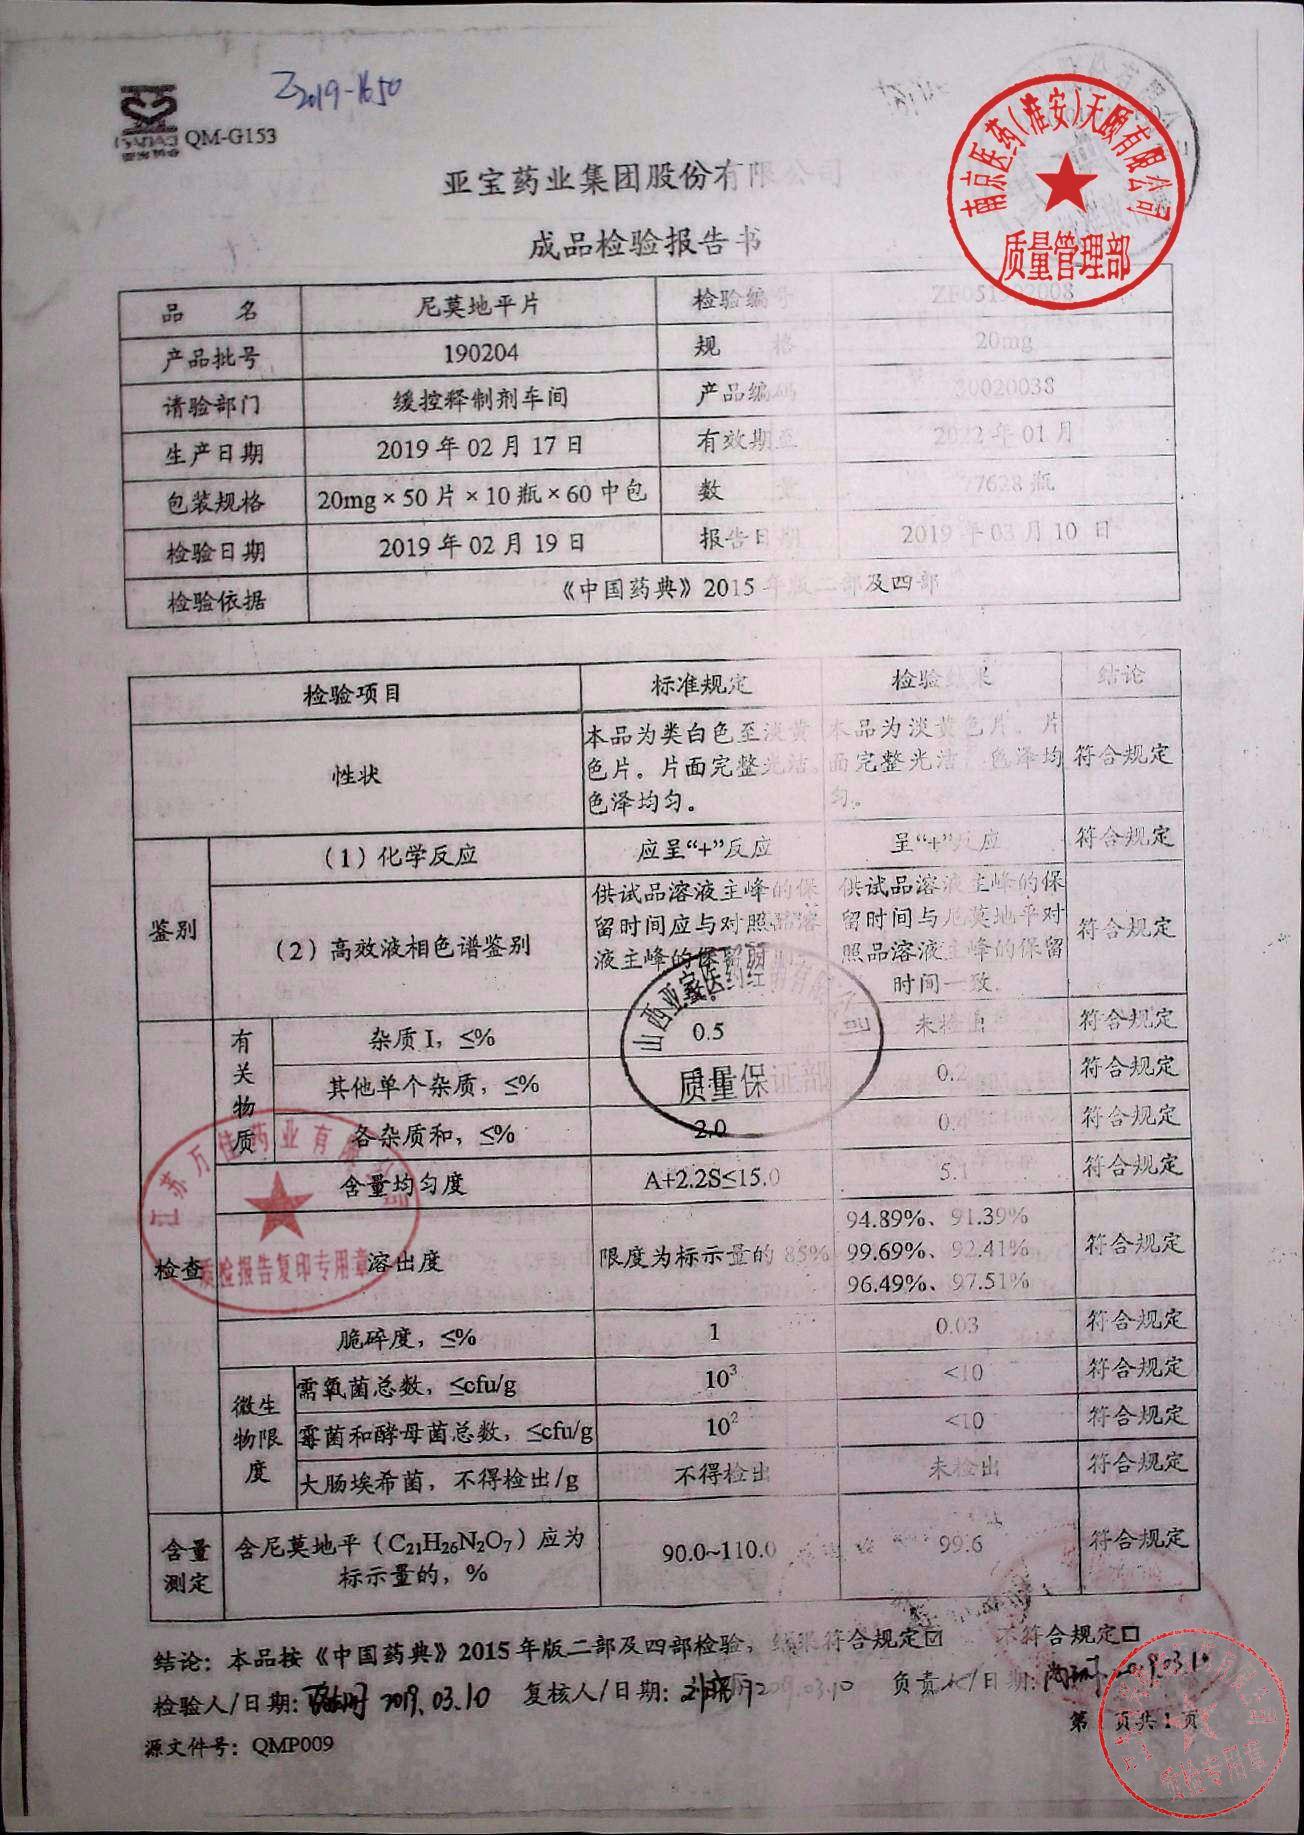 Z2019-1650
QM-G153
亚宝药业集团股份有限公司
成品检验报告书
南京医药(淮安)天颐有限公司
质量管理部
品 名 尼莫地平片 检验编号 ZF051902008
产品批号 190204 规 格 20mg
请验部门 缓控释制剂车间 产品编码 30020038
生产日期 2019年02月17日 有效期至 2022年01月
包装规格 20mg×50片×10瓶×60中包 数 量 77628瓶
检验日期 2019年02月19日 报告日期 2019年03月10日
检验依据 《中国药典》2015年版二部及四部
检验项目 标准规定 检验结果 结论
性状 本品为类白色至淡黄色片。片面完整光洁,色泽均匀。 本品为淡黄色片。片面完整光洁,色泽均匀。 符合规定
鉴别 (1)化学反应 应呈“+”反应 呈“+”反应 符合规定
(2)高效液相色谱鉴别 供试品溶液主峰的保留时间应与对照品溶液主峰的保留时 供试品溶液主峰的保留时间与尼莫地平对照品溶液主峰的保留时间一致。 符合规定
检查 有关物质 杂质I,≤% 0.5 未检出 符合规定
其他单个杂质,≤% 0.2 符合规定
各杂质和,≤% 2.0 0.4 符合规定
含量均匀度 A+2.2S≤15.0 5.1 符合规定
溶出度 限度为标示量的85% 94.89%、91.39% 99.69%、92.41% 96.49%、97.51% 符合规定
脆碎度,≤% 1 0.03 符合规定
微生物限度 需氧菌总数,≤cfu/g 10³ <10 符合规定
霉菌和酵母菌总数,≤cfu/g 10² <10 符合规定
大肠埃希菌,不得检出/g 不得检出 未检出 符合规定
含量测定 含尼莫地平(C₂₁H₂₆N₂O₇)应为标示量的,% 90.0~110.0 99.6 符合规定
山西亚宝医药经销有限公司
质量保证部
江苏万佳药业有限公司
质检报告复印专用章
结论:本品按《中国药典》2015年版二部及四部检验,结果符合规定☑ 不符合规定□
检验人/日期: 2019.03.10 复核人/日期: 2019.03.10 负责人/日期: 2019.03.10
第1页共1页
源文件号:QMP009
质检专用章